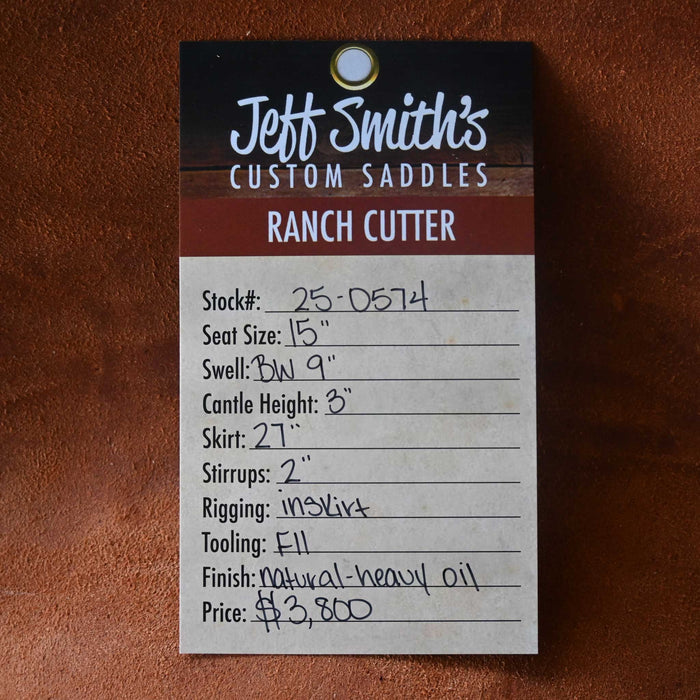 Jeff Smith's
CUSTOM SADDLES
RANCH CUTTER
Stock#: 25-0574
Seat Size: 15"
Swell: BW 9"
Cantle Height: 3"
Skirt: 27"
Stirrups: 2"
Rigging: inskirt
Tooling: F11
Finish: natural-heavy oil
Price: $3,800